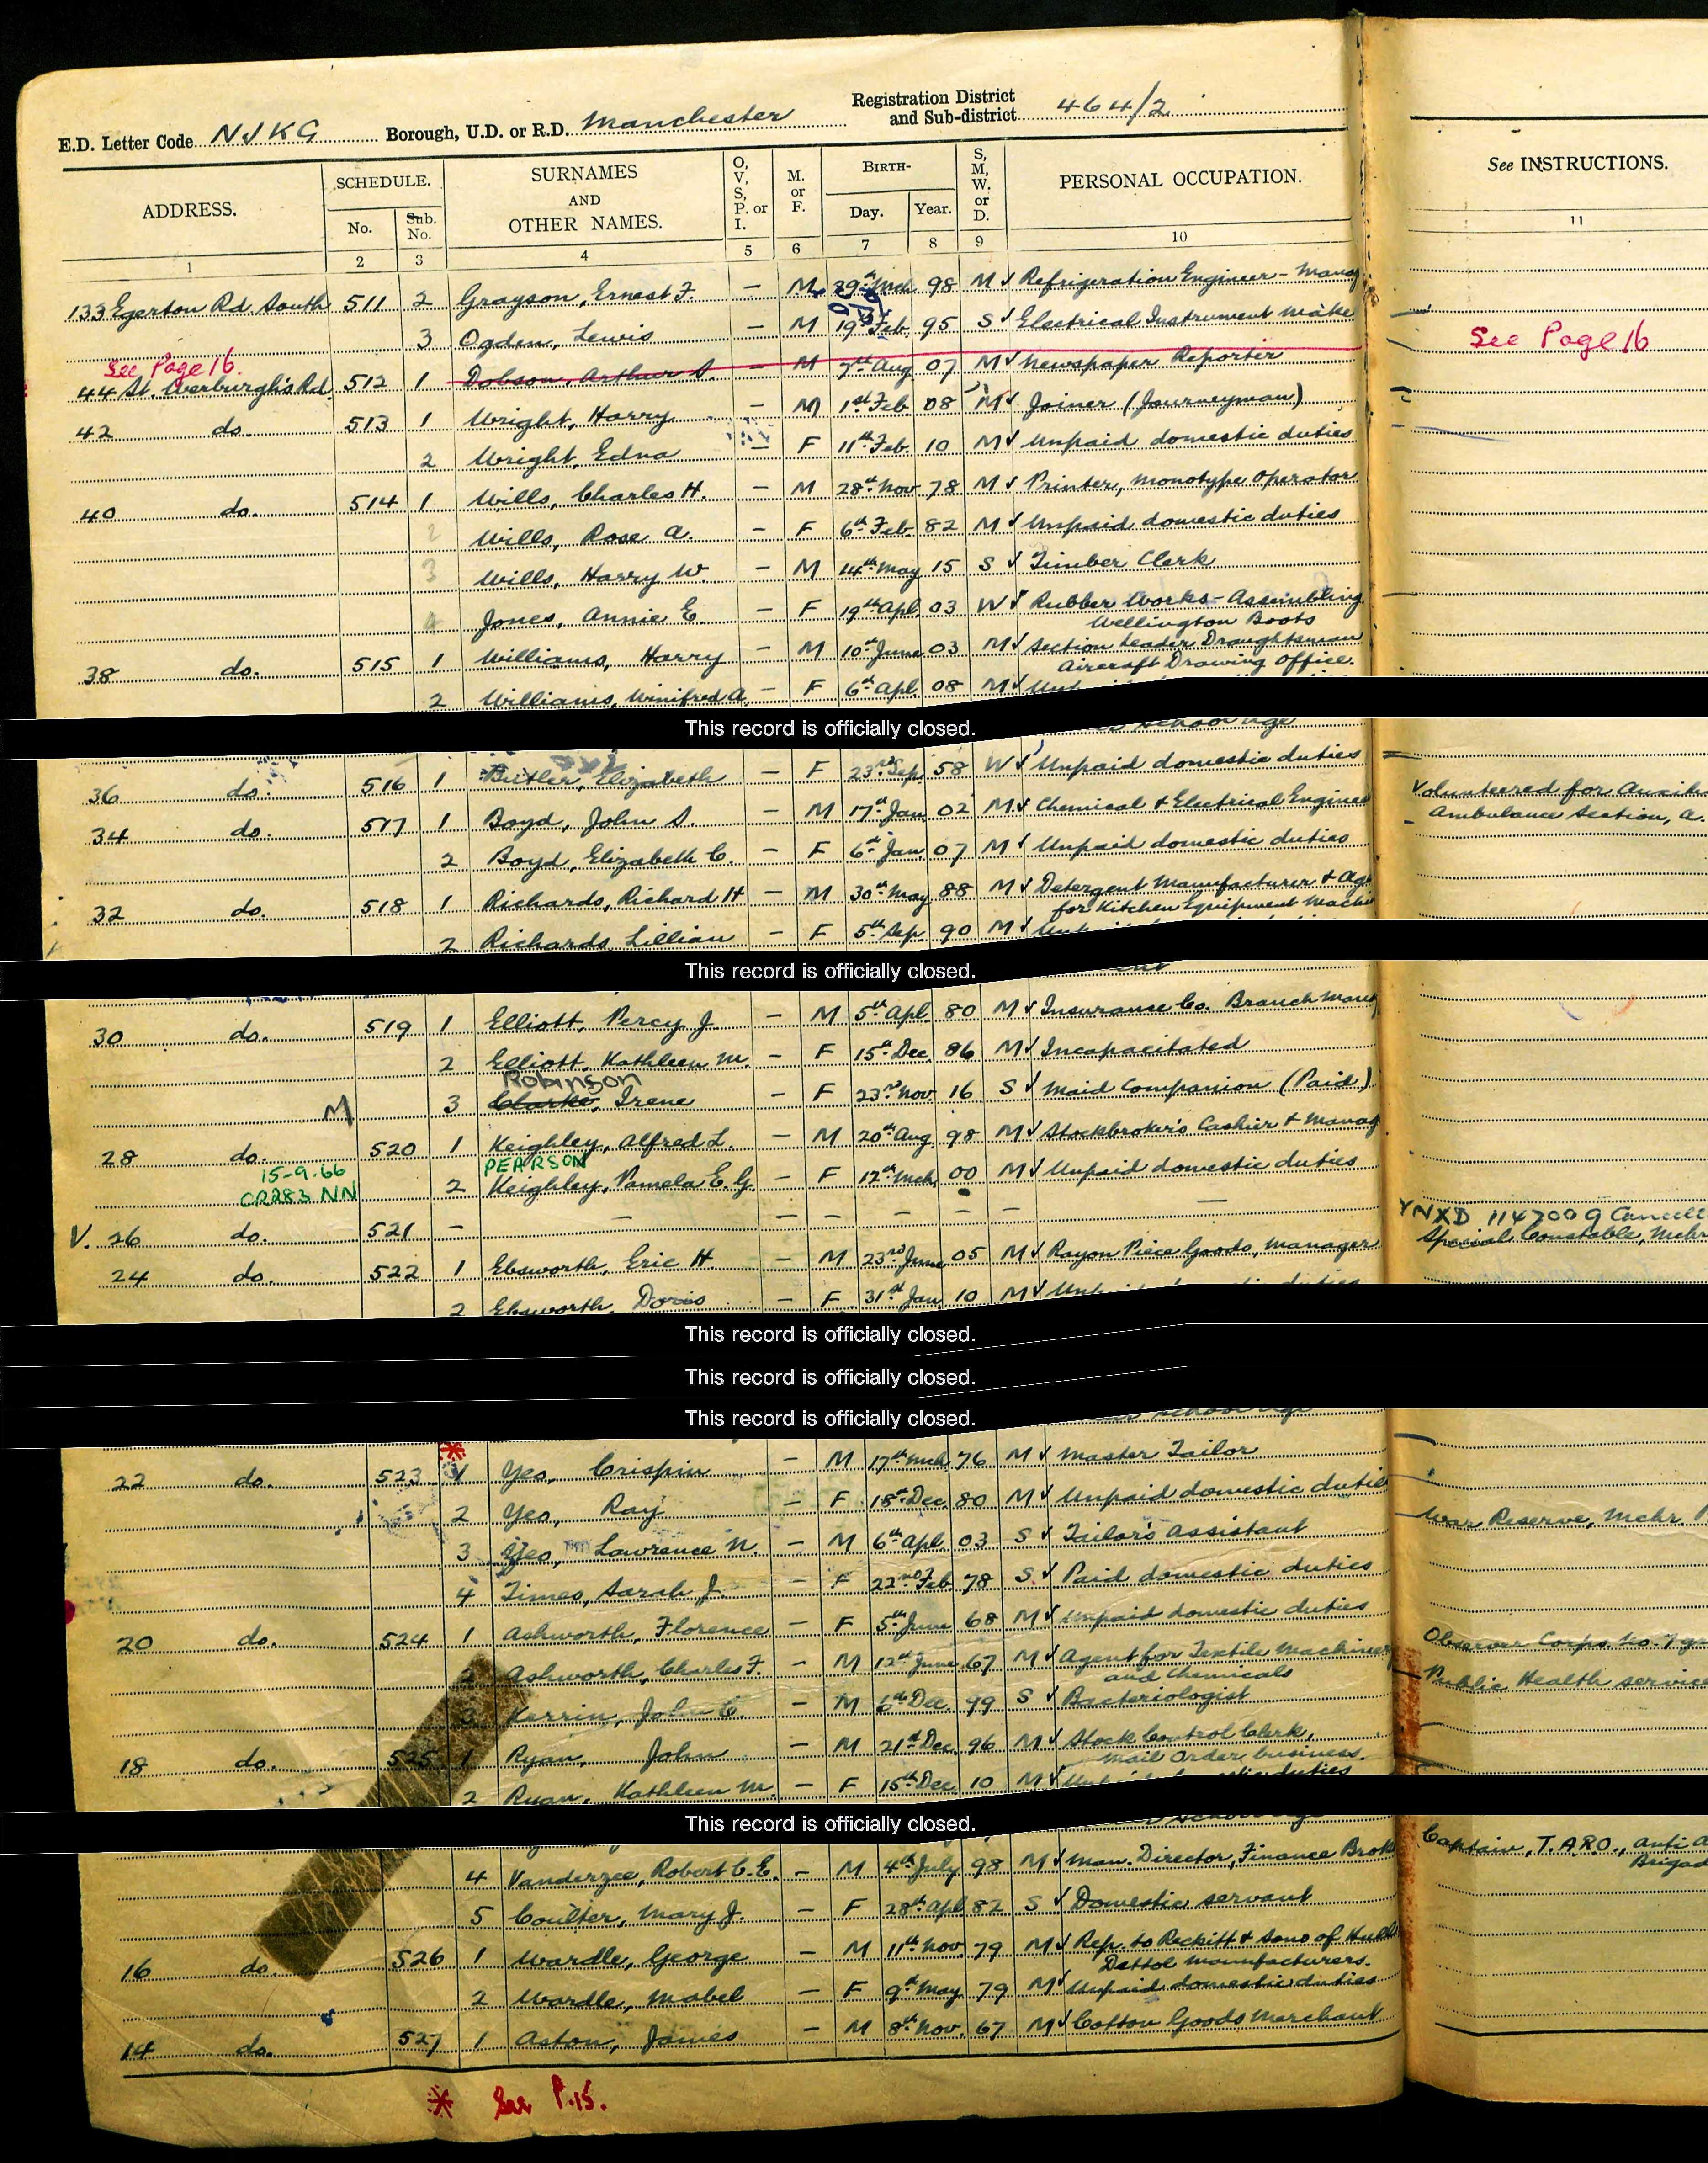 Registration District
E.D. Letter Code NJKG Borough, U.D. or R.D. Manchester and Sub-district 464/2
ADDRESS. SCHEDULE. SURNAMES AND OTHER NAMES. O, V, S, P. or I. M. or F. BIRTH- S, M, W. or D. PERSONAL OCCUPATION. See INSTRUCTIONS.
No. Sub. No. Day. Year.
1 2 3 4 5 6 7 8 9 10 11
133 Egerton Rd South 511 2 Grayson, Ernest F. – M 29th Mch 98 M Refrigeration Engineer – Manag
3 Ogden, Lewis – M 19th Feb 95 S Electrical Instrument Make
See Page 16. See Page 16
44 St. Werburgh's Rd 512 1 Dobson, Arthur S. – M 7th Aug 07 M Newspaper Reporter
42 do. 513 1 Wright, Harry – M 1st Feb 08 M Joiner (Journeyman)
2 Wright, Edna – F 11th Feb 10 M Unpaid domestic duties
40 do. 514 1 Wills, Charles H. – M 28th Nov 78 M Printer, Monotype Operator
2 Wills, Rose A. – F 6th Feb 82 M Unpaid domestic duties
3 Wills, Harry W. – M 14th May 15 S Timber Clerk
4 Jones, Annie E. – F 19th Apl 03 W Rubber Works – Assembling
Wellington Boots
38 do. 515 1 Williams, Harry – M 10th June 03 M Section Leader Draughtsman
Aircraft Drawing Office.
2 Williams, Winifred A. – F 6th Apl 08 M
This record is officially closed.
36 do. 516 1 Butler, Elizabeth – F 23rd Sep 58 W Unpaid domestic duties
34 do. 517 1 Boyd, John S. – M 17th Jan 02 M Chemical & Electrical Enginee Volunteered for Auxil
Ambulance Section, A.
2 Boyd, Elizabeth C. – F 6th Jan 07 M Unpaid domestic duties
32 do. 518 1 Richards, Richard H – M 30th May 88 M Detergent Manufacturer & Ag
for Kitchen Equipment Machi
2 Richards, Lillian – F 5th Sep 90 M
This record is officially closed.
30 do. 519 1 Elliott, Percy J – M 5th Apl 80 M Insurance Co. Branch Mang
2 Elliott, Kathleen M. – F 15th Dec 86 M Incapacitated
Robinson
M 3 Clarke, Irene – F 23rd Nov 16 S Maid Companion (Paid)
28 do. 520 1 Keighley, Alfred L. – M 20th Aug 98 M Stockbroker's Cashier & Manag
15-9.66 PEARSON
CR283 NN 2 Keighley, Pamela E. G. – F 12th Mch 00 M Unpaid domestic duties
V. 26 do. 521 – – – – – – – – YNXD 1147009 Cancell
24 do. 522 1 Ebsworth, Eric H – M 23rd June 05 M Rayon Piece Goods, Manager Special Constable, Mchr
2 Ebsworth, Doris – F 31st Jan 10 M
This record is officially closed.
This record is officially closed.
This record is officially closed.
22 do. 523 1 Yeo, Crispin – M 17th Mch 76 M Master Tailor
2 Yeo, Ray – F 18th Dec 80 M Unpaid domestic duties
3 Yeo, Lawrence N. – M 6th Apl 03 S Tailor's Assistant War Reserve, Mchr
4 Times, Sarah J. – F 22nd Feb 78 S Paid domestic duties
20 do. 524 1 Ashworth, Florence – F 5th June 68 M Unpaid domestic duties
2 Ashworth, Charles F. – M 12th June 67 M Agent for Textile Machiner Observer Corps. No. 7 gr
and Chemicals
3 Kerrin, John C. – M 6th Dec 99 S Bacteriologist Public Health service
18 do. 525 1 Ryan, John – M 21st Dec 96 M Stock Control Clerk,
Mail Order business.
2 Ryan, Kathleen M. – F 15th Dec 10 M
This record is officially closed.
4 Vanderzee, Robert C. E. – M 4th July 98 M Man. Director, Finance Brok Captain, T.A.R.O., Anti A
Brigad
5 Coulter, Mary J. – F 28th Apl 82 S Domestic servant
16 do. 526 1 Wardle, George – M 11th Nov 79 M Rep. to Reckitt & Sons of Hull
Dettol Manufacturers.
2 Wardle, Mabel – F 9th May 79 M Unpaid domestic duties
14 do. 527 1 Aston, James – M 8th Nov. 67 M Cotton Goods Merchant
* See P.15.